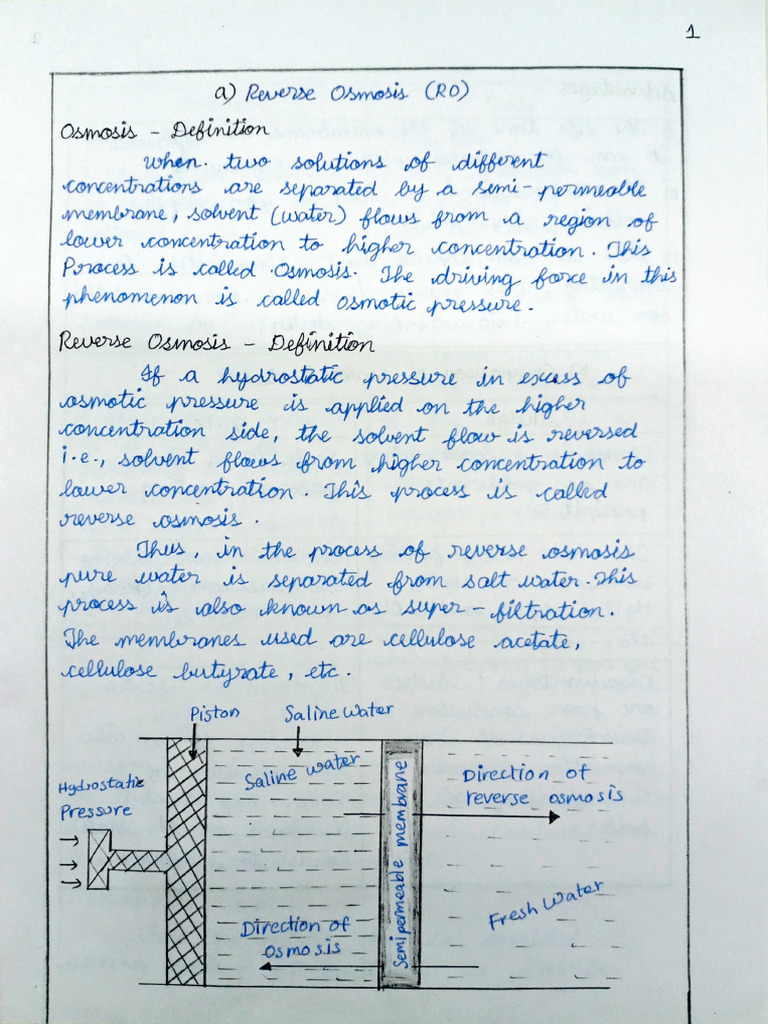 1
a) Reverse Osmosis (RO)
Osmosis - Definition
When. two solutions of different
concentrations are separated by a semi-permeable
membrane, solvent (water) flows from a region of
lower concentration to higher concentration. This
Process is called Osmosis. The driving force in this
phenomenon is called osmotic pressure.
Reverse Osmosis - Definition
If a hydrostatic pressure in excess of
osmotic pressure is applied on the higher
concentration side, the solvent flow is reversed
i.e., solvent flows from higher concentration to
lower concentration. This process is called
reverse osmosis.
Thus, in the process of reverse osmosis
pure water is separated from salt water. This
process is also known as super-filtration.
The membranes used are cellulose acetate,
cellulose butyrate, etc.
Piston
Saline water
Hydrostatic
Pressure
Saline water
Semipermeable membrane
Direction of
reverse osmosis
Direction of
osmosis
Fresh Water